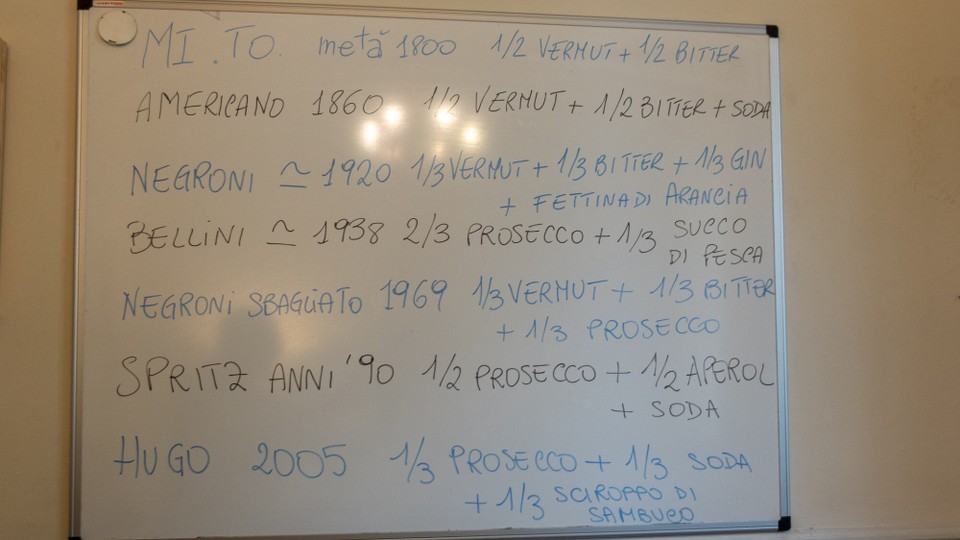 MI.TO. metà 1800 1/2 VERMUT + 1/2 BITTER
AMERICANO 1860 1/2 VERMUT + 1/2 BITTER + SODA
NEGRONI ≃ 1920 1/3 VERMUT + 1/3 BITTER + 1/3 GIN
+ FETTINA DI ARANCIA
BELLINI ≃ 1938 2/3 PROSECCO + 1/3 SUCCO
DI PESCA
NEGRONI SBAGLIATO 1969 1/3 VERMUT + 1/3 BITTER
+ 1/3 PROSECCO
SPRITZ ANNI '90 1/2 PROSECCO + 1/2 APEROL
+ SODA
HUGO 2005 1/3 PROSECCO + 1/3 SODA
+ 1/3 SCIROPPO DI
SAMBUCO